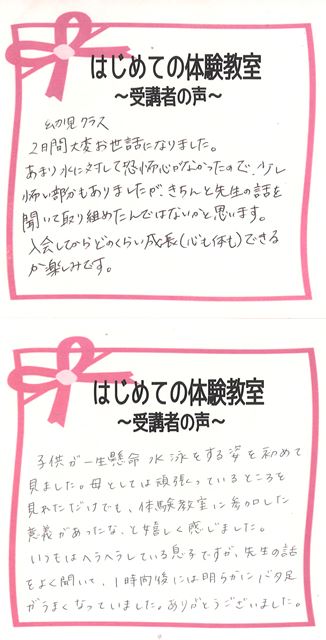 はじめての体験教室
～受講者の声～
幼児クラス
2日間大変お世話になりました。
あまり水に対して恐怖心がなかったので、少し
怖い部分もありましたが、きちんと先生の話を
聞いて取り組めたんではないかと思います。
入会してからどのくらい成長(心も体も)できる
か楽しみです。
はじめての体験教室
～受講者の声～
子供が一生懸命水泳をする姿を初めて
見ました。母としては頑張っているところを
見れただけでも、体験教室に参加した
意義があったな、と嬉しく感じました。
いつもはヘラヘラしている息子ですが、先生の話
をよく聞いて、1時間後には明らかにバタ足
がうまくなっていました。ありがとうございました。